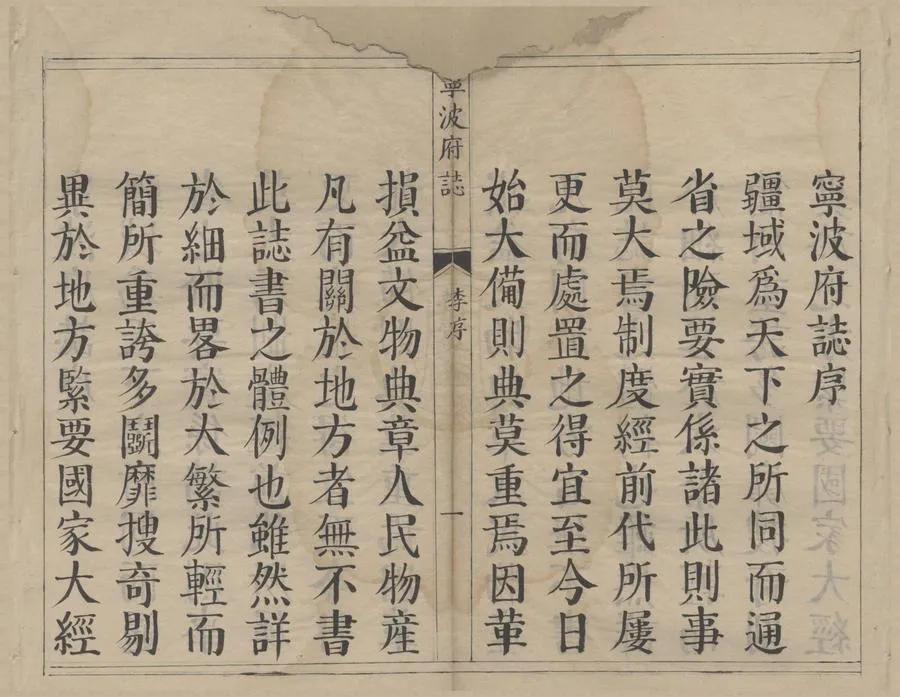 寧波府誌序
疆域為天下之所同而通
省之險要實係諸此則事
莫大焉制度經前代所屢
更而處置之得宜至今日
始大備則典莫重焉因革
寧波府誌
李序
一
損益文物典章人民物産
凡有關於地方者無不書
此誌書之體例也雖然詳
於細而畧於大繁所輕而
簡所重誇多鬭靡搜奇剔
異於地方緊要國家大經